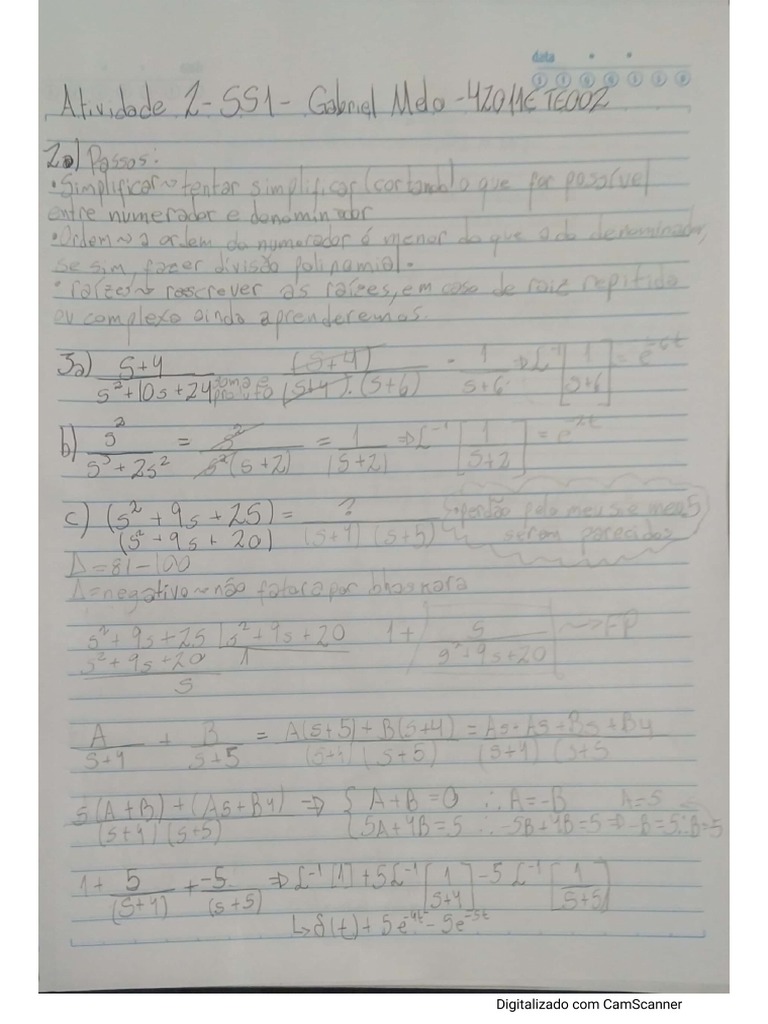 data
Atividade 2-SS1- Gabriel Melo -42011ETE002
2a) Passos:
•Simplificar~> tentar simplificar (cortando) o que for possível
entre numerador e denominador
•Ordem~> a ordem do numerador é menor do que a do denominador,
se sim, fazer divisão polinomial.
• raízes~> reescrever as raízes, em caso de raiz repitida
ou complexo ainda aprenderemos.
3a) s+4 / s²+10s+24 soma e produto (s+4) / (s+4).(s+6) = 1 / s+6 => L⁻¹[1 / s+6] = e^-6t
b) s² / s³+2s² = s² / s²(s+2) = 1 / (s+2) => L⁻¹[1 / s+2] = e^-2t
c) (s²+9s+25) / (s²+9s+20) = ? / (s+4)(s+5) perdão pelo meu s e meu 5 serem parecidos
Δ=81-100
Δ=negativo~> não fatora por bhaskara
s²+9s+25 | s²+9s+20 1+ [5 / s²+9s+20] ~> FP
s²+9s+20 1
5
A / s+4 + B / s+5 = A(s+5)+B(s+4) / (s+4)(s+5) = As+A5+Bs+B4 / (s+4)(s+5
s(A+B)+(A5+B4) / (s+4)(s+5) => { A+B=0 ∴A=-B A=5
5A+4B=5 ∴-5B+4B=5=>-B=5∴B=-5
1+ 5 / (s+4) + -5 / (s+5) => L⁻¹[1]+5L⁻¹[1 / s+4]-5L⁻¹[1 / s+5]
↳δ(t)+5e^-4t-5e^-5t
Digitalizado com CamScanner